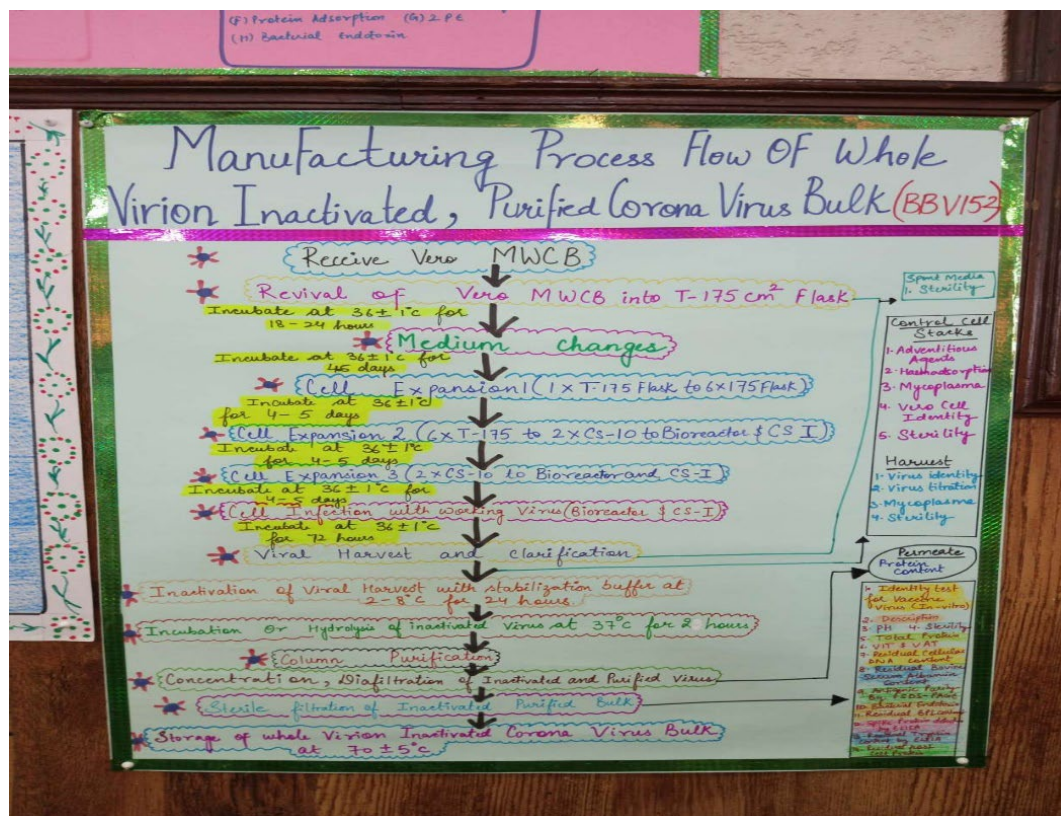 (F) Protein Adsorption (G) 2 PE
(H) Bacterial Endotoxin
Manufacturing Process Flow OF Whole
Virion Inactivated, Purified Corona Virus Bulk (BBV152)
Receive Vero MWCB
Revival of Vero MWCB into T-175 cm² Flask
Incubate at 36±1°c for
18-24 hours
Medium changes
Incubate at 36±1°c for
45 days
Cell Expansion 1 (1 x T-175 Flask to 6x175 Flask)
Incubate at 36±1°c
for 4-5 days
Cell Expansion 2 (6xT-175 to 2xCS-10 to Bioreactor & CS I)
Incubate at 36±1°c
for 4-5 days
Cell Expansion 3 (2xCS-10 to Bioreactor and CS-I)
Incubate at 36±1°c for
4-5 days
Cell Infection with working Virus (Bioreactor & CS-I)
Incubate at 36±1°c
for 72 hours
Viral Harvest and clarification
Inactivation of Viral Harvest with stabilization buffer at
2-8°c for 24 hours
Incubation Or Hydrolysis of inactivated Virus at 37°c for 2 hours
Column Purification
Concentration, Diafiltration of Inactivated and Purified Virus
Sterile filtration of Inactivated Purified Bulk
Storage of whole Virion Inactivated Corona Virus Bulk
at 70±5°c
Spent Media
1. Sterility
Control Cell
Stacks
1. Adventitious
Agents
2.
3. Mycoplasma
4. Vero Cell
Identity
5. Sterility
Harvest
1. Virus identity
2. Virus titration
3. Mycoplasma
4. Sterility
Permeate
Protein
Content
1. Identity test
for Vaccine
Virus (In-vitro)
2. Description
3. PH 4. Sterility
5. Total Protein
6. VIT & VAT
7. Residual Cellular
DNA content
8. Residual Bovine
Serum Albumin
Content
9. Antigenic Purity
by
10. Bacterial Endotoxin
11. Residual BPL
by ELISA
content by ELISA
Residual Host
Cell Protein